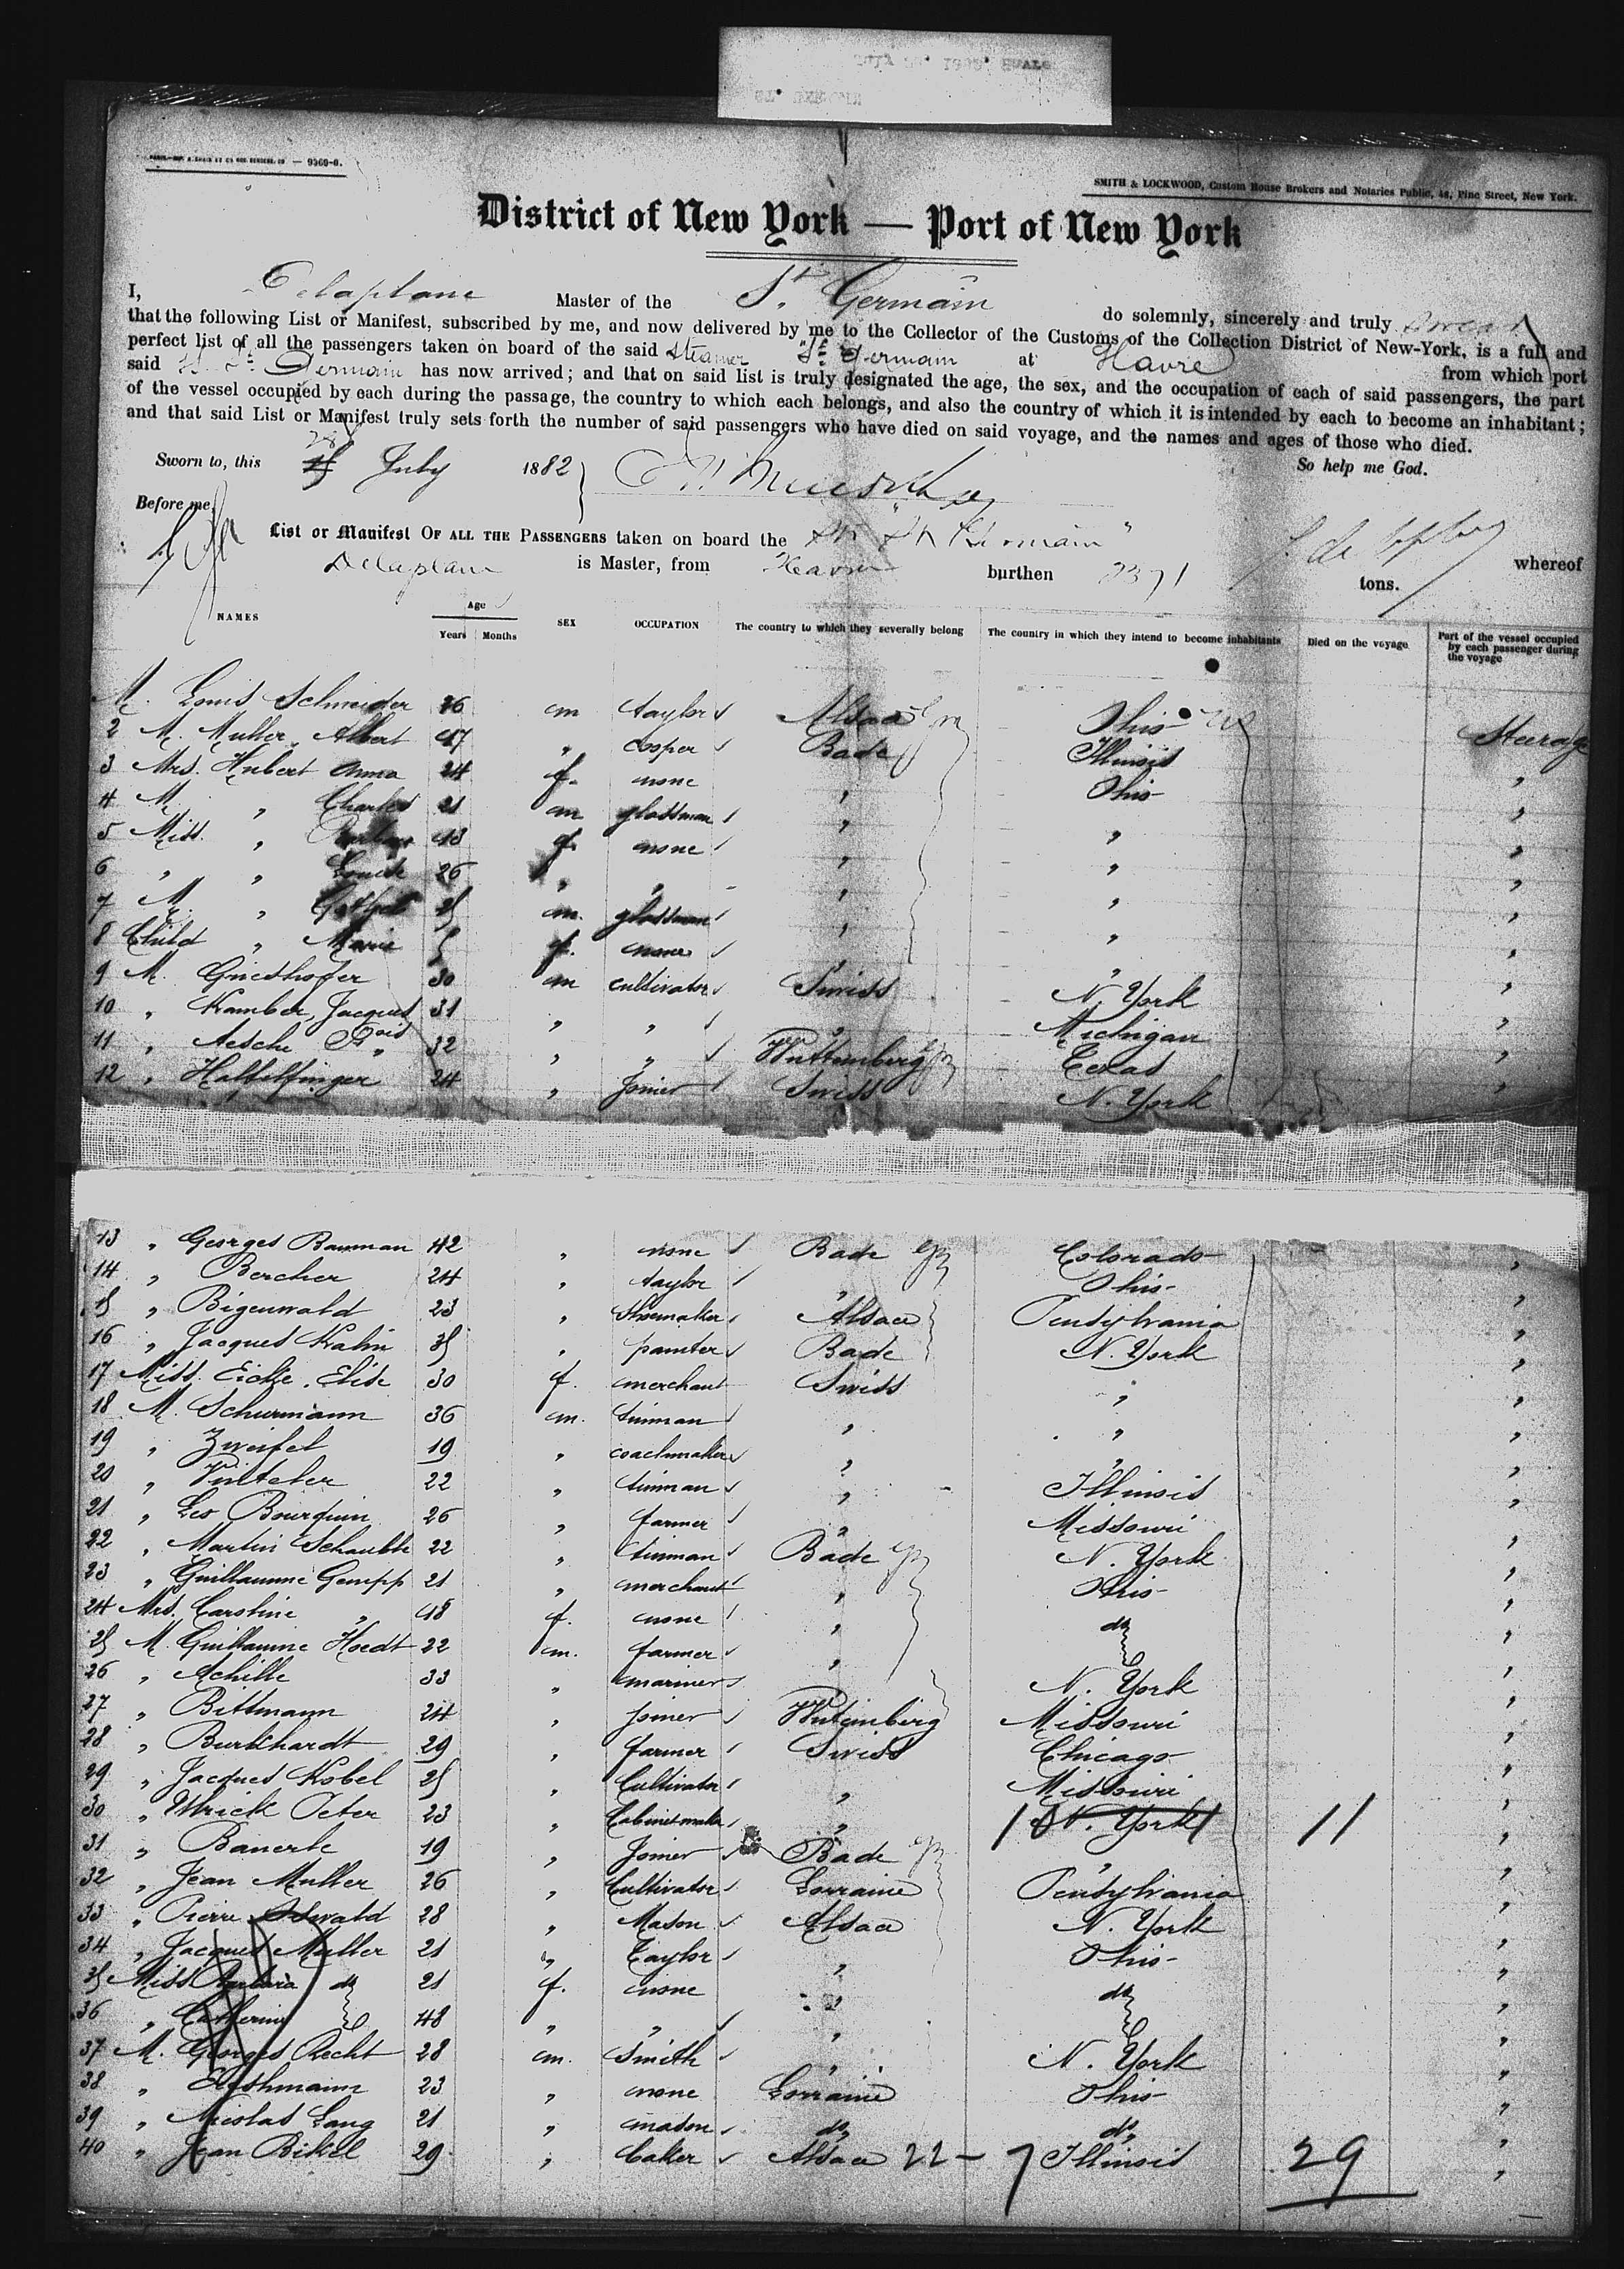 District of New York — Port of New York
SMITH & LOCKWOOD, Custom House Brokers and Notaries Public, 48, Pine Street, New York.
I, Delaplane Master of the St. Germain do solemnly, sincerely and truly swear
that the following List or Manifest, subscribed by me, and now delivered by me to the Collector of the Customs of the Collection District of New-York, is a full and
perfect list of all the passengers taken on board of the said Steamer "St. Germain at Havre from which port
said St. Germain has now arrived; and that on said list is truly designated the age, the sex, and the occupation of each of said passengers, the part
of the vessel occupied by each during the passage, the country to which each belongs, and also the country of which it is intended by each to become an inhabitant;
and that said List or Manifest truly sets forth the number of said passengers who have died on said voyage, and the names and ages of those who died.
So help me God.
Sworn to, this 28 July 1882
Before me,
List or Manifest OF ALL THE PASSENGERS taken on board the St Germain" whereof
Delaplane is Master, from Havre burthen tons.
NAMES Age Years Months SEX OCCUPATION The country to which they severally belong The country in which they intend to become inhabitants Died on the voyage Part of the vessel occupied by each passenger during the voyage
M. Louis Schneider 26 m taylor Alsace Ohio Steerage
2 M. Muller Albert 47 " cooper Bade Illinois "
3 Mrs. Hubert Anna 24 f. none " Ohio "
4 M. " Charles 21 m glassman " " "
5 Miss. " f. none " " "
6 " " Louise 26 " " " " "
7 M. " m. glassman " " "
8 Child " Marie 5 f. none " " "
9 M. Grieshofer 30 m cultivator Swiss N. York "
10 " Kamber, Jacques 31 " " " Michigan "
11 " Aesche 32 " " Wuttemberg Texas "
12 " Halfelfinger 24 " Joiner Swiss N. York "
13 " Georges Bauman 42 " none Bade Colorado "
14 " Bercher 24 " taylor " Ohio "
15 " Bigenwald 23 " Shoemaker Alsace Pensylvania "
16 " Jacques Kalin 35 " painter Bade N. York "
17 Miss. Eicke. Elise 30 f. merchant Swiss " "
18 M. Schurmann 36 m. tinman " " "
19 " Zweifel 19 " coachmaker " " "
20 " Vinteler 22 " tinman " Illinois "
21 " Leo Bourquin 26 " farmer " Missouri "
22 " Martin Schauble 22 " tinman Bade N. York "
23 " Guillaume Gempp 21 " merchant " Ohio "
24 Mrs. Caroline " 48 f. none " do "
25 M. Guillaume Hoedt 22 m. farmer " "
26 " Achille 33 " mariner N. York "
27 " Bittmann 24 " Joiner Wutemberg Missouri "
28 " Burkhardt 29 " farmer Swiss Chicago "
29 " Jacques Kobel 25 " Cultivator " Missouri "
30 " Ulrick Peter 23 " Cabinetmaker " N. York 11 "
31 " Bauerle 19 " Joiner Bade " "
32 " Jean Muller 26 " Cultivator Lorraine Pensylvania "
33 " Pierre Oswald 28 " Mason Alsace N. York "
34 " Jacques Muller 21 " Taylor " Ohio "
35 Miss Barbara do 21 f. none " do "
36 " Catherine 48 " " " "
37 M. Georges Recht 28 m. Smith " N. York "
38 " 23 " none Lorraine Ohio "
39 " Nicolas Lang 21 " mason do do "
40 " Jean Bikel 29 " baker Alsace 22 - 7 Illinois 29 "